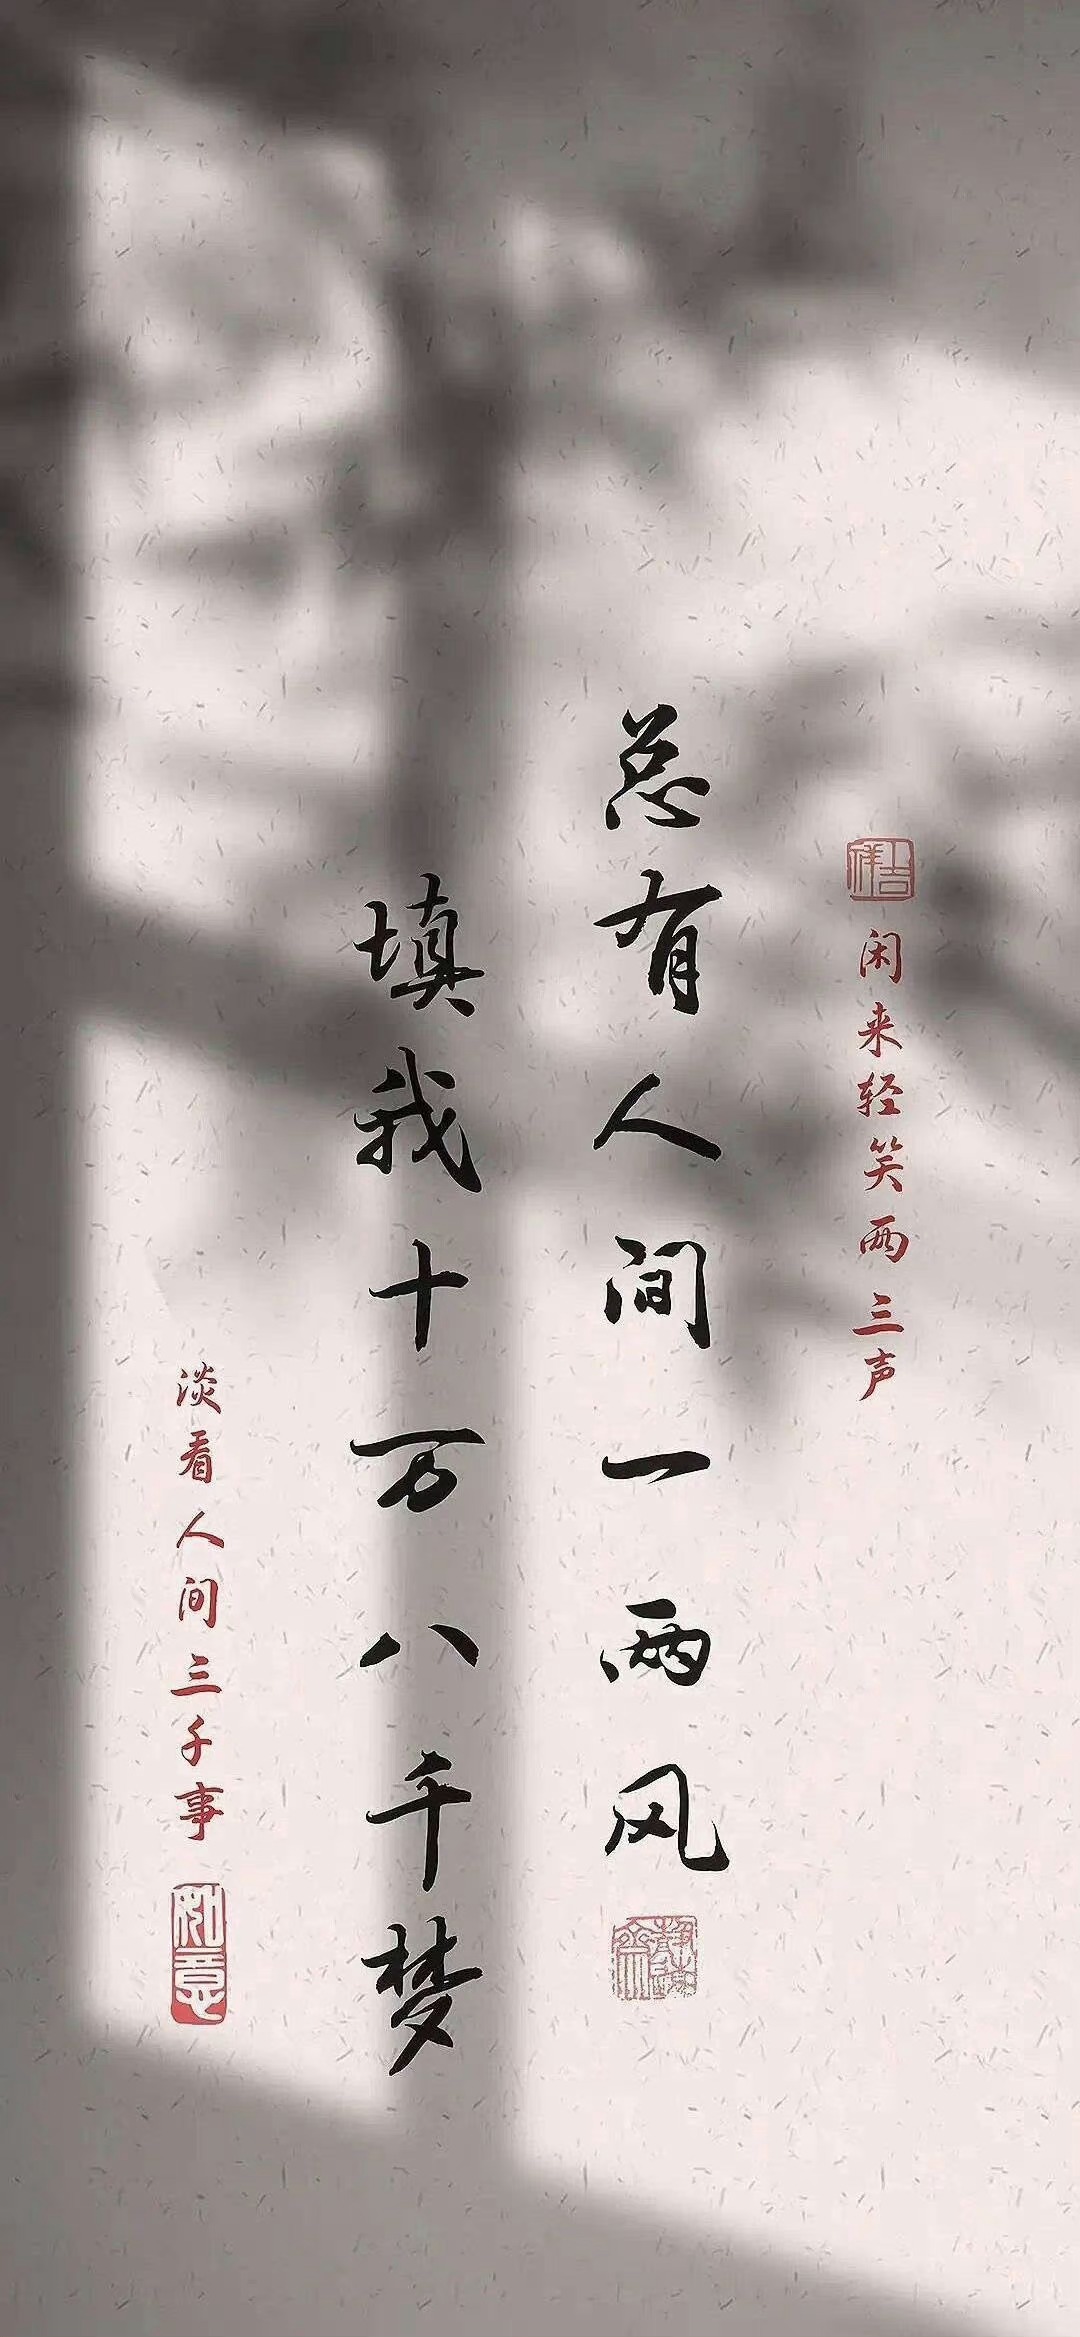 吉祥
闲来轻笑两三声
总有人间一两风
填我十万八千梦
淡看人间三千事
如意